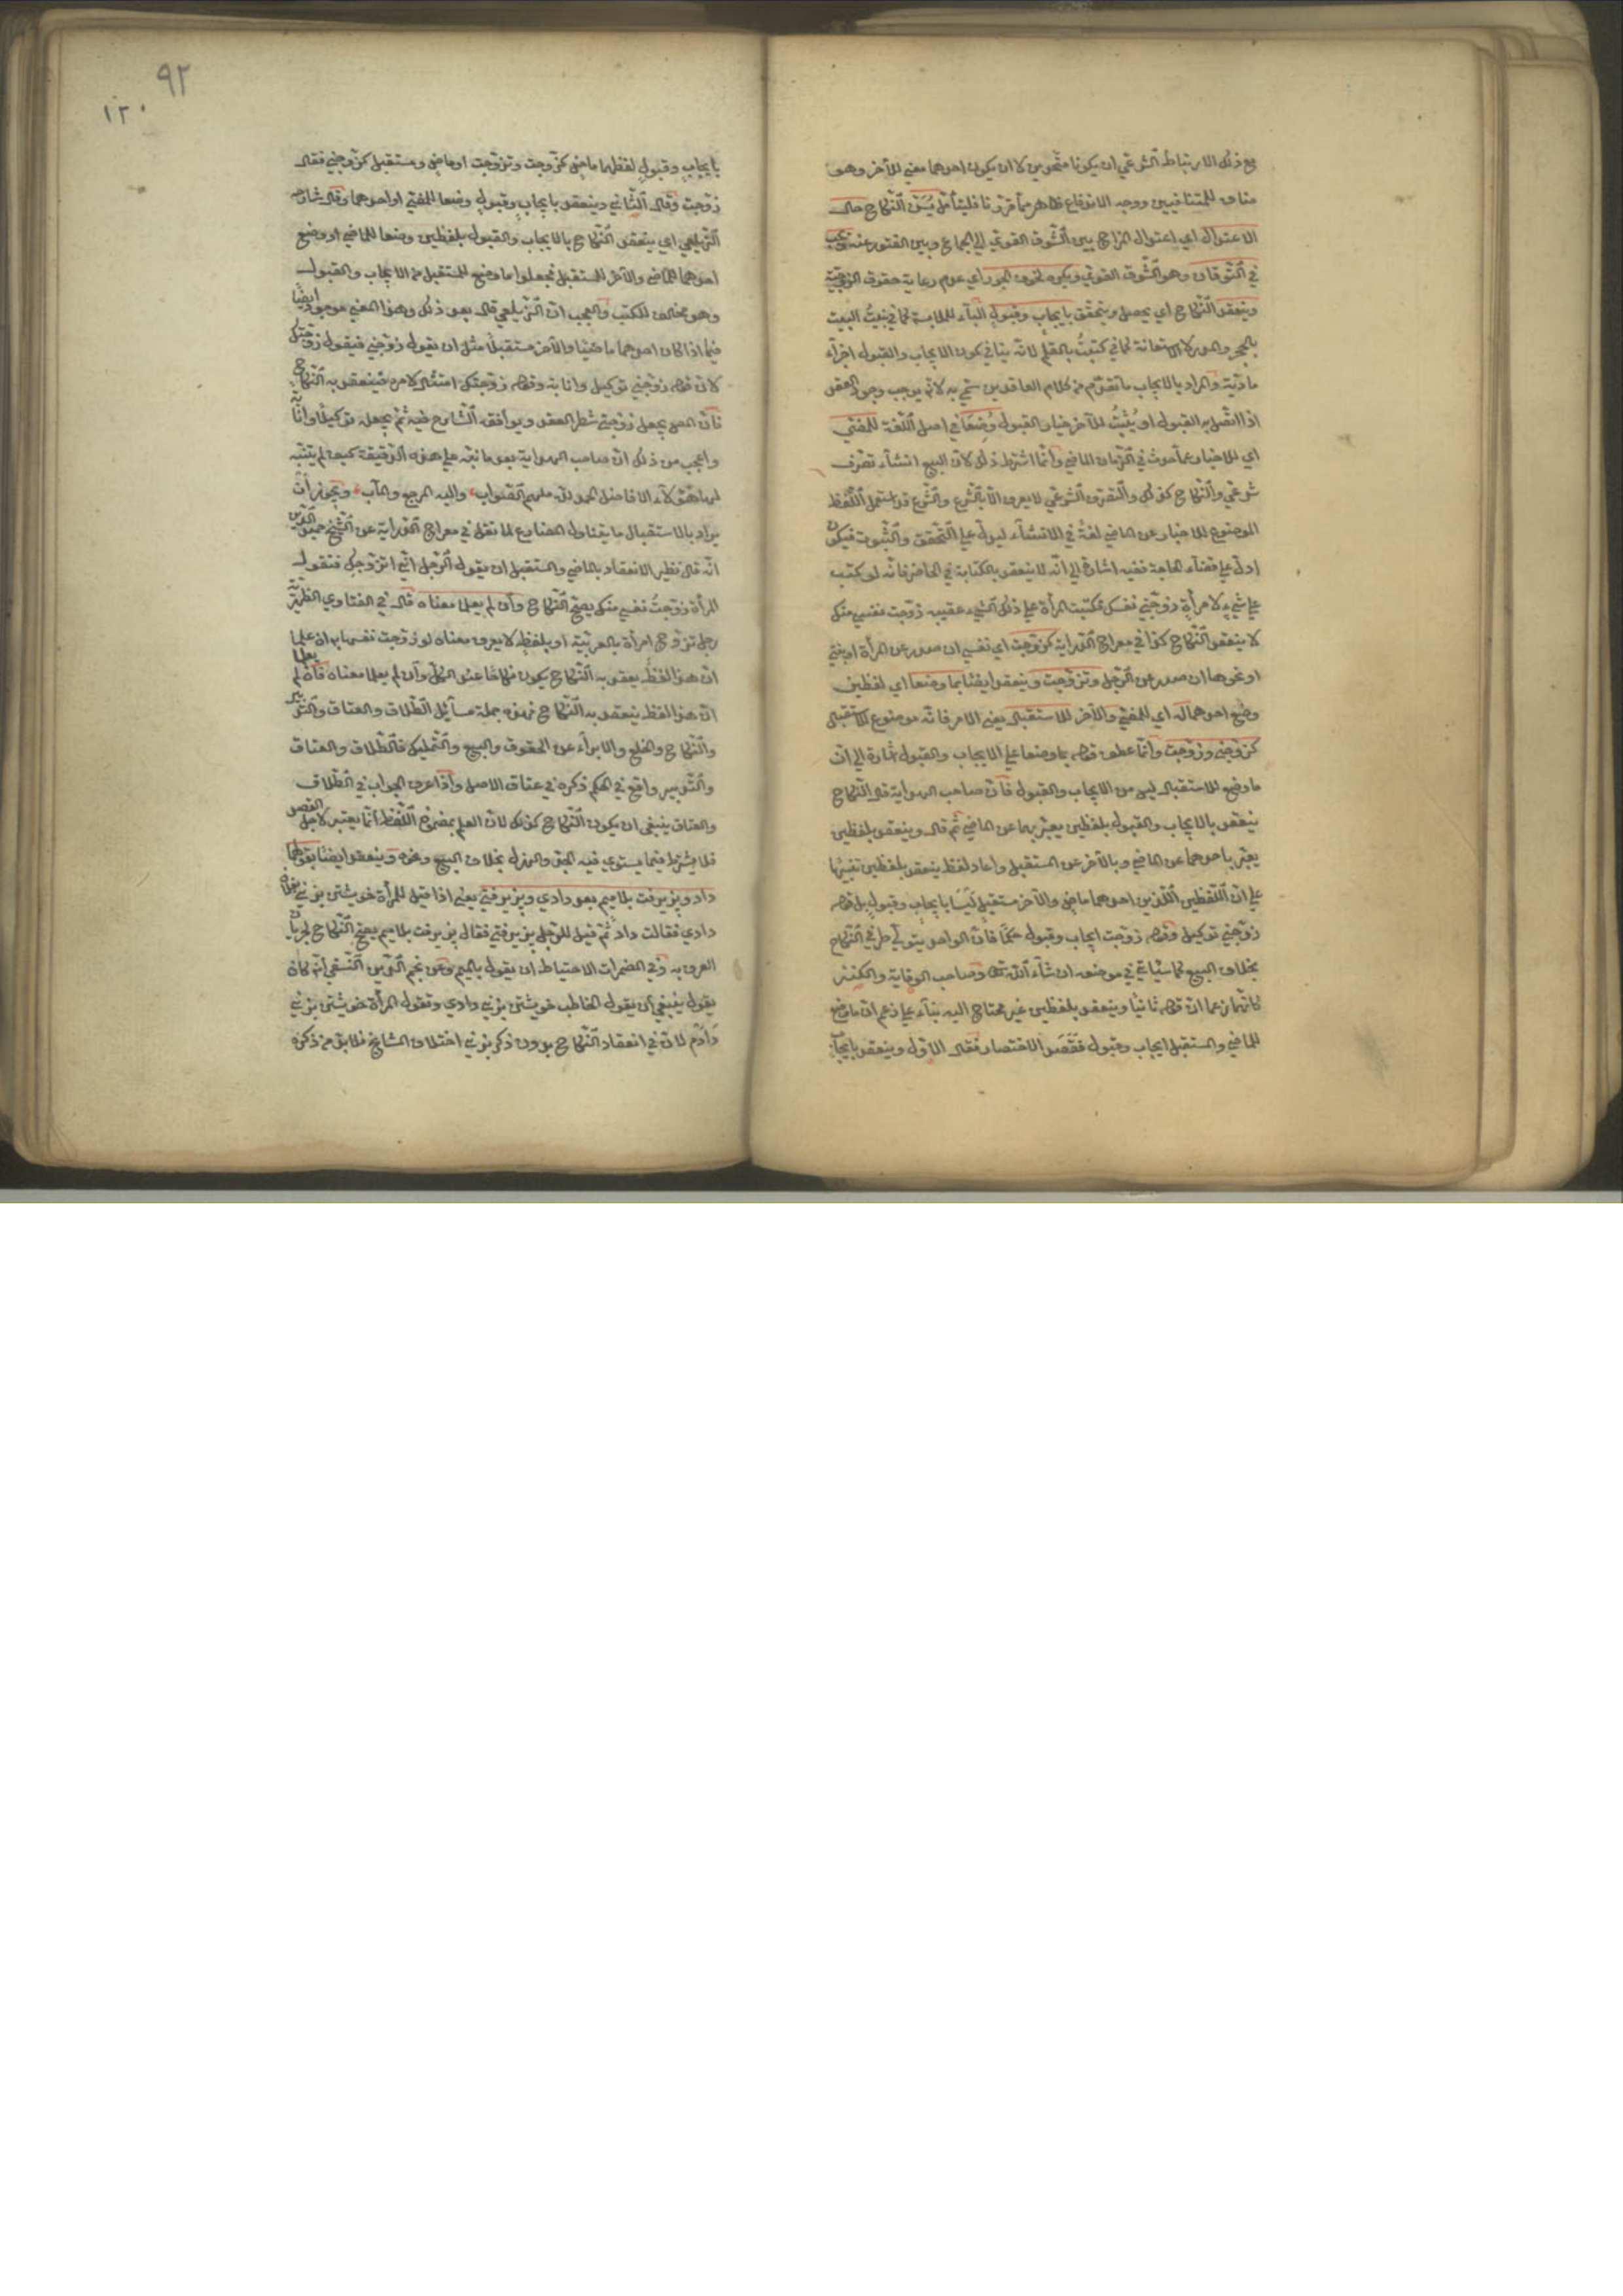 مع ذلك الارتباط الشرعي ان يكونا متحدين لا ان يكون احدهما معني للآخر وهو
مناف للمتنافيين ووجه الاندفاع ظاهر مما قررنا فليتأمل يسن النكاح حال
الاعتدال اي اعتدال المزاج بين الشوق القوي الي الجماع وبين الفتور عنه ويجب
في التوقان وهو الشوق القوي ويكره لخوف الجور اي عدم رعاية حقوق الزوجية
وينعقد النكاح اي يحصل ويتحقق بايجاب وقبول الباء للملابسة كما في بنيت البيت
بالحجر والمدر لا الاستعانة كما في كتبت بالقلم لانه ينافي كون الايجاب والقبول اجزآء
مادية والمراد بالايجاب ما تقدم من كلام العاقدين سمي به لانه يوجب وجود العقد
اذا اتصل به القبول او يثبت للآخر خيار القبول وضعا في اصل اللغة للمضي
اي للاخبار عما حدث في الزمان الماضي وانما اشترط ذلك لان البيع انشآء تصرف
شرعي والنكاح كذلك والتصرف الشرعي لا يعرف الا بالشرع والشرع قد استعمل اللفظ
الموضوع للاخبار عن الماضي لغة في الانشآء ليدل علي التحقق والثبوت فيكون
ادل علي قضآء الحاجة ففيه اشارة الي انه لا ينعقد بالكتابة في الحاضر فانه لو كتب
علي شيء لامرأة زوجني نفسك فكتبت المرأة علي ذلك الشيء عقيبه زوجت نفسي منك
لا ينعقد النكاح كذا في معراج الدراية كزوجت اي نفسي ان صدر عن المرأة او بنتي
او نحوها ان صدر عن الرجل وتزوجت وينعقد ايضا بما وضعا اي لفظين
وضع احدهما له اي للمضي والآخر للاستقبال يعني الامر فانه موضوع للاستقبال
كزوجني وزوجت وانما عطف قوله بما وضعا علي الايجاب والقبول اشارة الي ان
ما وضع للاستقبال ليس من الايجاب والقبول فان صاحب الهداية قال النكاح
ينعقد بالايجاب والقبول بلفظين يعبر بهما عن الماضي ثم قال وينعقد بلفظين
يعبر باحدهما عن الماضي وبالآخر عن المستقبل واعاد لفظ ينعقد بلفظين تنبيها
علي ان اللفظين اللذين احدهما ماض والآخر مستقبل ليسا بايجاب وقبول بل قوله
زوجني توكيل وقوله زوجت ايجاب وقبول حكما فان الواحد يتولي طرفي النكاح
بخلاف البيع كما سيأتي في موضعه ان شآء الله تعالى وصاحب الوقاية والكنز
كانهما زعما ان قوله ثانيا وينعقد بلفظين غير محتاج اليه بنآء علي زعم ان ما وضع
للماضي والمستقبل ايجاب وقبول فقصد الاختصار فقال الاول وينعقد بايجاب
٩٢
١٢٠
بايجاب وقبول لفظهما ماض كزوجت وتزوجت او ماض ومستقبل كزوجني فقال
زوجت وقال الثاني وينعقد بايجاب وقبول وضعا للمضي او احدهما وقال شارحه
الزيلعي اي ينعقد النكاح بالايجاب والقبول بلفظين وضعا للماضي او وضع
احدهما للماضي والآخر للمستقبل فجعلوا ما وضع للمستقبل من الايجاب والقبول
وهو مخالف للكتب والعجب ان الزيلعي قال بعد ذلك وهذا المعني موجود ايضا
فيما اذا كان احدهما ماضيا والآخر مستقبلا مثل ان يقول زوجني فيقول زوجتك
لان قوله زوجني توكيل وانابة وقوله زوجتك امتثال لامره فينعقد به النكاح
فان المص يجعل زوجني شطر العقد ويوافقه الشارح فيه ثم يجعله توكيلا وانابة
واعجب من ذلك ان صاحب الهداية بعد ما نبه علي هذه الدقيقة كيف لم يتنبه
لها هؤلآء الافاضل الحمد لله ملهم الصواب واليه المرجع والمآب ويجوز ان
يراد بالاستقبال ما يتناول المضارع لما نقل في معراج الدراية عن الشيخ حميد الدين
انه قال نظير الانعقاد بالماضي والمستقبل ان يقول الرجل اني اتزوجك فتقول
المرأة زوجت نفسي منك يصح النكاح وان لم يعلما معناه قال في الفتاوي الظهيرية
رجل تزوج امرأة بالعربية او بلفظ لا يعرف معناه لو زوجت نفسها به ان علما
ان هذا لفظ يعقد به النكاح يكون نكاحا عند الكل وان لم يعلما معناه فان لم يعلما
ان هذا لفظ ينعقد به النكاح فهذه جملة مسآئل الطلاق والعتاق والتدبير
والنكاح والخلع والابرآء عن الحقوق والبيع والتمليك فالطلاق والعتاق
والتدبير واقع في الحكم ذكره في عتاق الاصل واذا عرف الجواب في الطلاق
والعتاق ينبغي ان يكون النكاح كذلك لان العلم بمضمون اللفظ انما يعتبر لاجل القصد
فلا يشترط فيما يستوي فيه الجد والهزل بخلاف البيع ونحوه وينعقد ايضا بقولهما
داد وپذيرفت بلا ميم بعد دادي وپذيرفتي يعني اذا قيل للمرأة خويشتن بزني بفلان
دادي فقالت داد ثم قيل للرجل پذيرفتي فقال پذيرفت بلا ميم يصح النكاح لجريان
العرف به وفي المضمرات الاحتياط ان يقول بالميم وعن نجم الدين النسفي انه كان
يقول ينبغي ان يقول الخاطب خويشتن بزني دادي وتقول المرأة خويشتن بزني
دادم لان في انعقاد النكاح بدون ذكر بزني اختلاف المشايخ فلا بد من ذكره